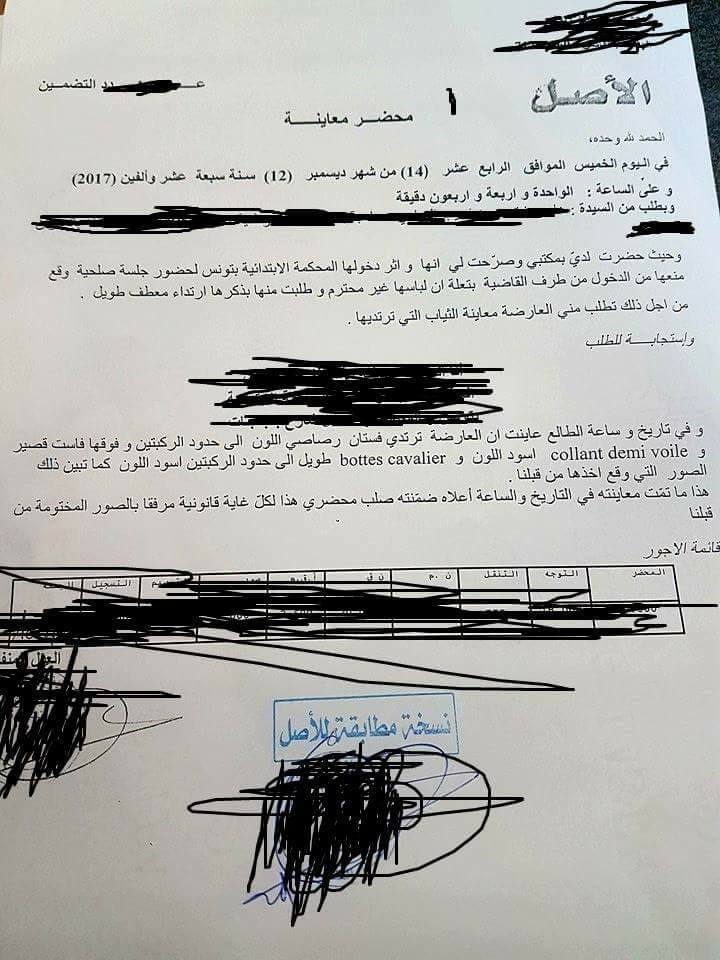 الأصل
عـــدد التضمـين
محضـر معاينـــة
الحمد لله وحده،
في اليوم الخميس الموافق الرابع عشر (14) من شهر ديسمبر (12) سنة سبعة عشر وألفين (2017)
و على الساعة : الواحدة و اربعة و اربعون دقيقة
وبطلب من السيدة :
وحيث حضرت لديّ بمكتبي وصرّحت لي انها و اثر دخولها المحكمة الابتدائية بتونس لحضور جلسة صلحية وقع
منعها من الدخول من طرف القاضية بتعلة ان لباسها غير محترم و طلبت منها بذكرها ارتداء معطف طويل .
من اجل ذلك تطلب مني العارضة معاينة الثياب التي ترتديها .
وإستجابـــة للطلب
و في تاريخ و ساعة الطالع عاينت ان العارضة ترتدي فستان رصاصي اللون الى حدود الركبتين و فوقها فاست قصير
و collant demi voile اسود اللون و bottes cavalier طويل الى حدود الركبتين اسود اللون كما تبين ذلك
الصور التي وقع اخذها من قبلنا .
هذا ما تمّت معاينته في التاريخ والساعة أعلاه ضمّنته صلب محضري هذا لكلّ غاية قانونية مرفقا بالصور المختومة من
قبلنا
قائمة الاجور
المحضر التوجه التنقل ن .م ن ق التسجيل
العدل المنف
نسخة مطابقة للأصل